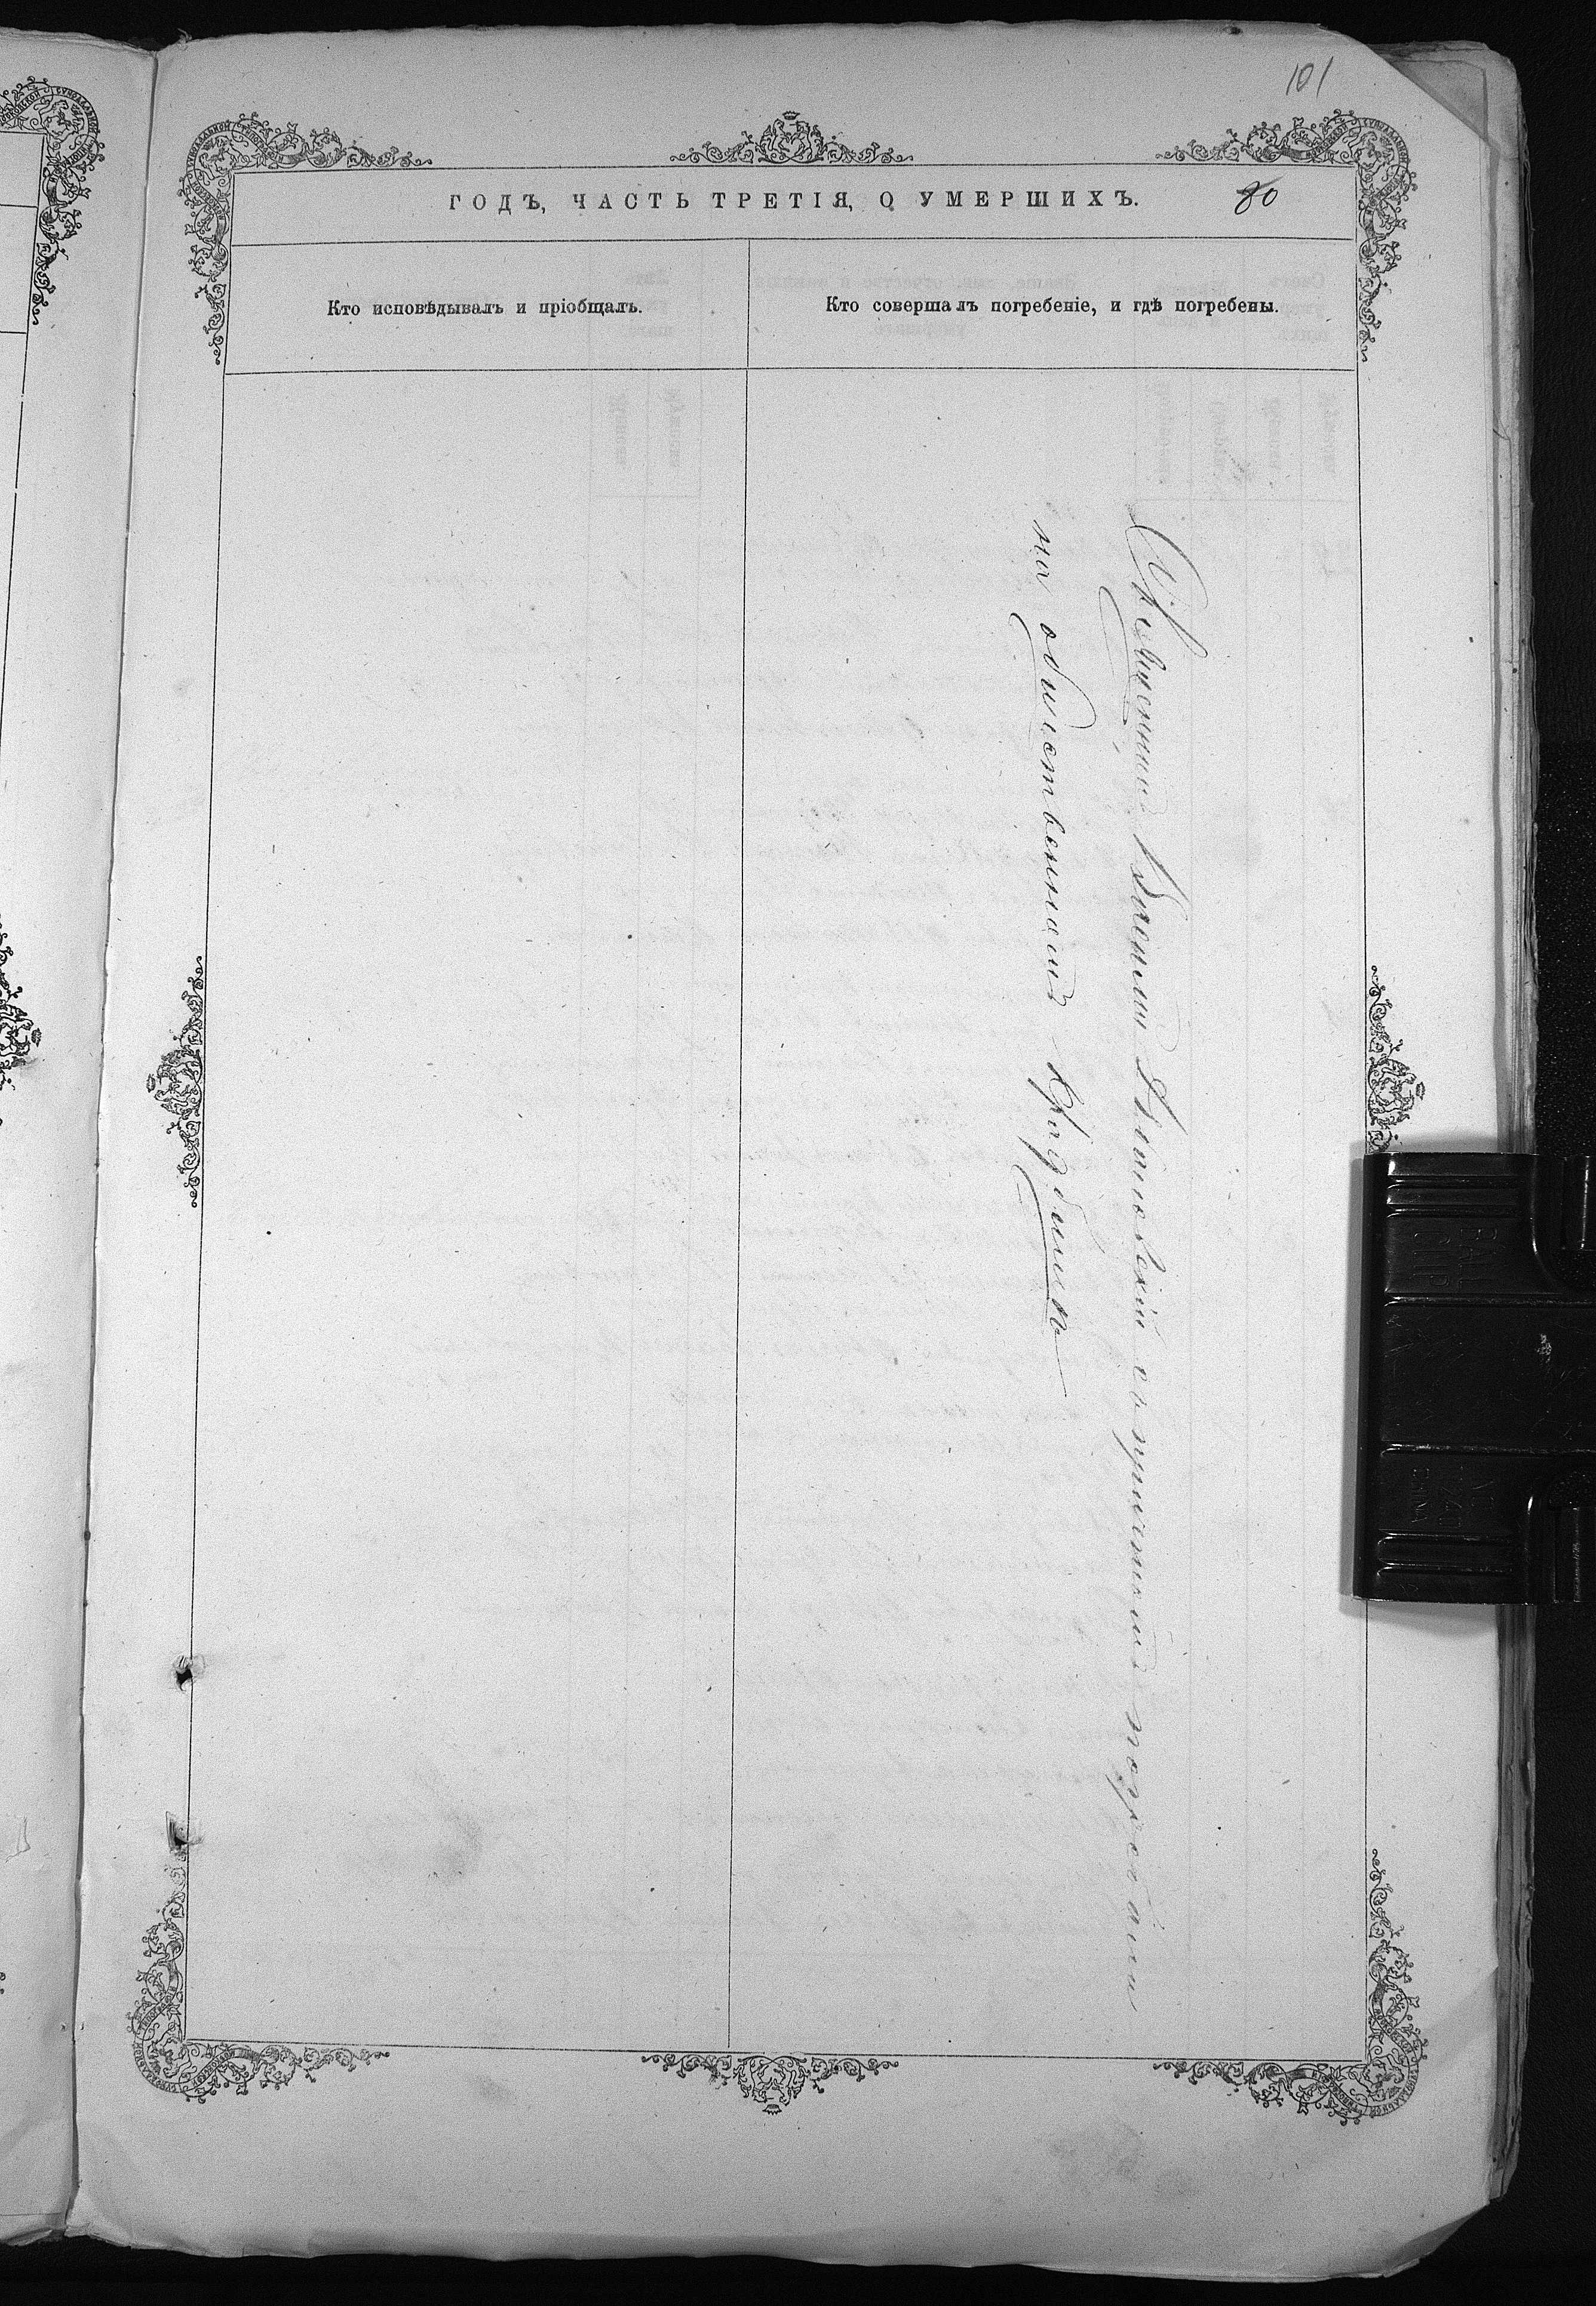 101
ГОДЪ, ЧАСТЬ ТРЕТІЯ, О УМЕРШИХЪ.
80
Кто исповѣдывалъ и пріобщалъ.
Кто совершалъ погребеніе, и гдѣ погребены.
Священникъ съ причтомъ погребали
на общественномъ кладбищѣ